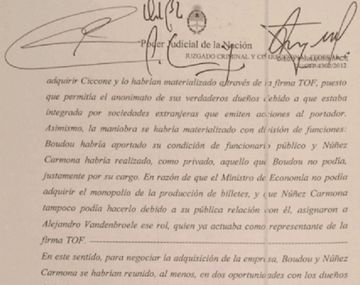 Poder Judicial de la Nación
JUZGADO CRIMINAL Y CORRECCIONAL FEDERAL
1302/2012
adquirir Ciccone y lo habrían materializado através de la firma TOF, puesto
que permitía el anonimato de sus verdaderos dueños debido a que estaba
integrada por sociedades extranjeras que emiten acciones al portador.
Asimismo, la maniobra se habría materializado con división de funciones:
Boudou habría aportado su condición de funcionario público y Núñez
Carmona habría realizado, como privado, aquello que Boudou no podía,
justamente por su cargo. En razón de que el Ministro de Economía no podía
adquirir el monopolio de la producción de billetes, y que Núñez Carmona
tampoco podía hacerlo debido a su pública relación con él, asignaron a
Alejandro Vandenbroele ese rol, quien ya actuaba como representante de la
firma TOF.
En este sentido, para negociar la adquisición de la empresa, Boudou y Núñez
Carmona se habrían reunido, al menos, en dos oportunidades con los dueños